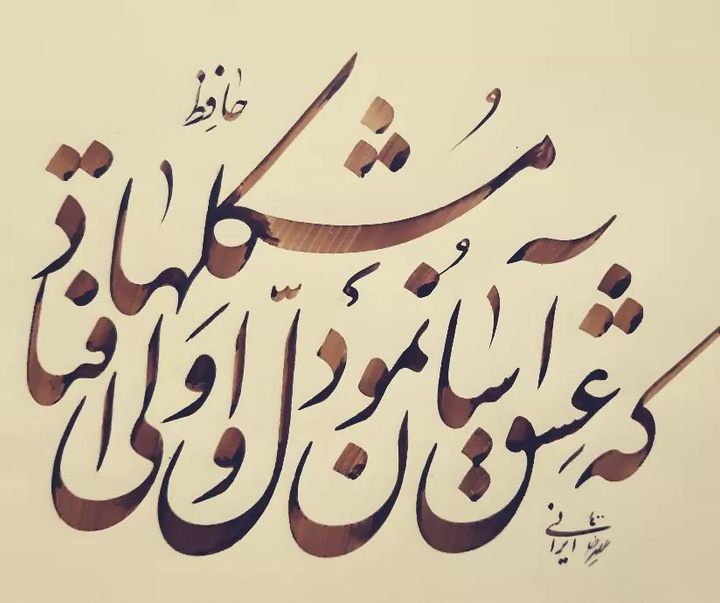 حافظ
که عشق آسان نمود اوّل ولی افتاد مُشکلها
ایرانی